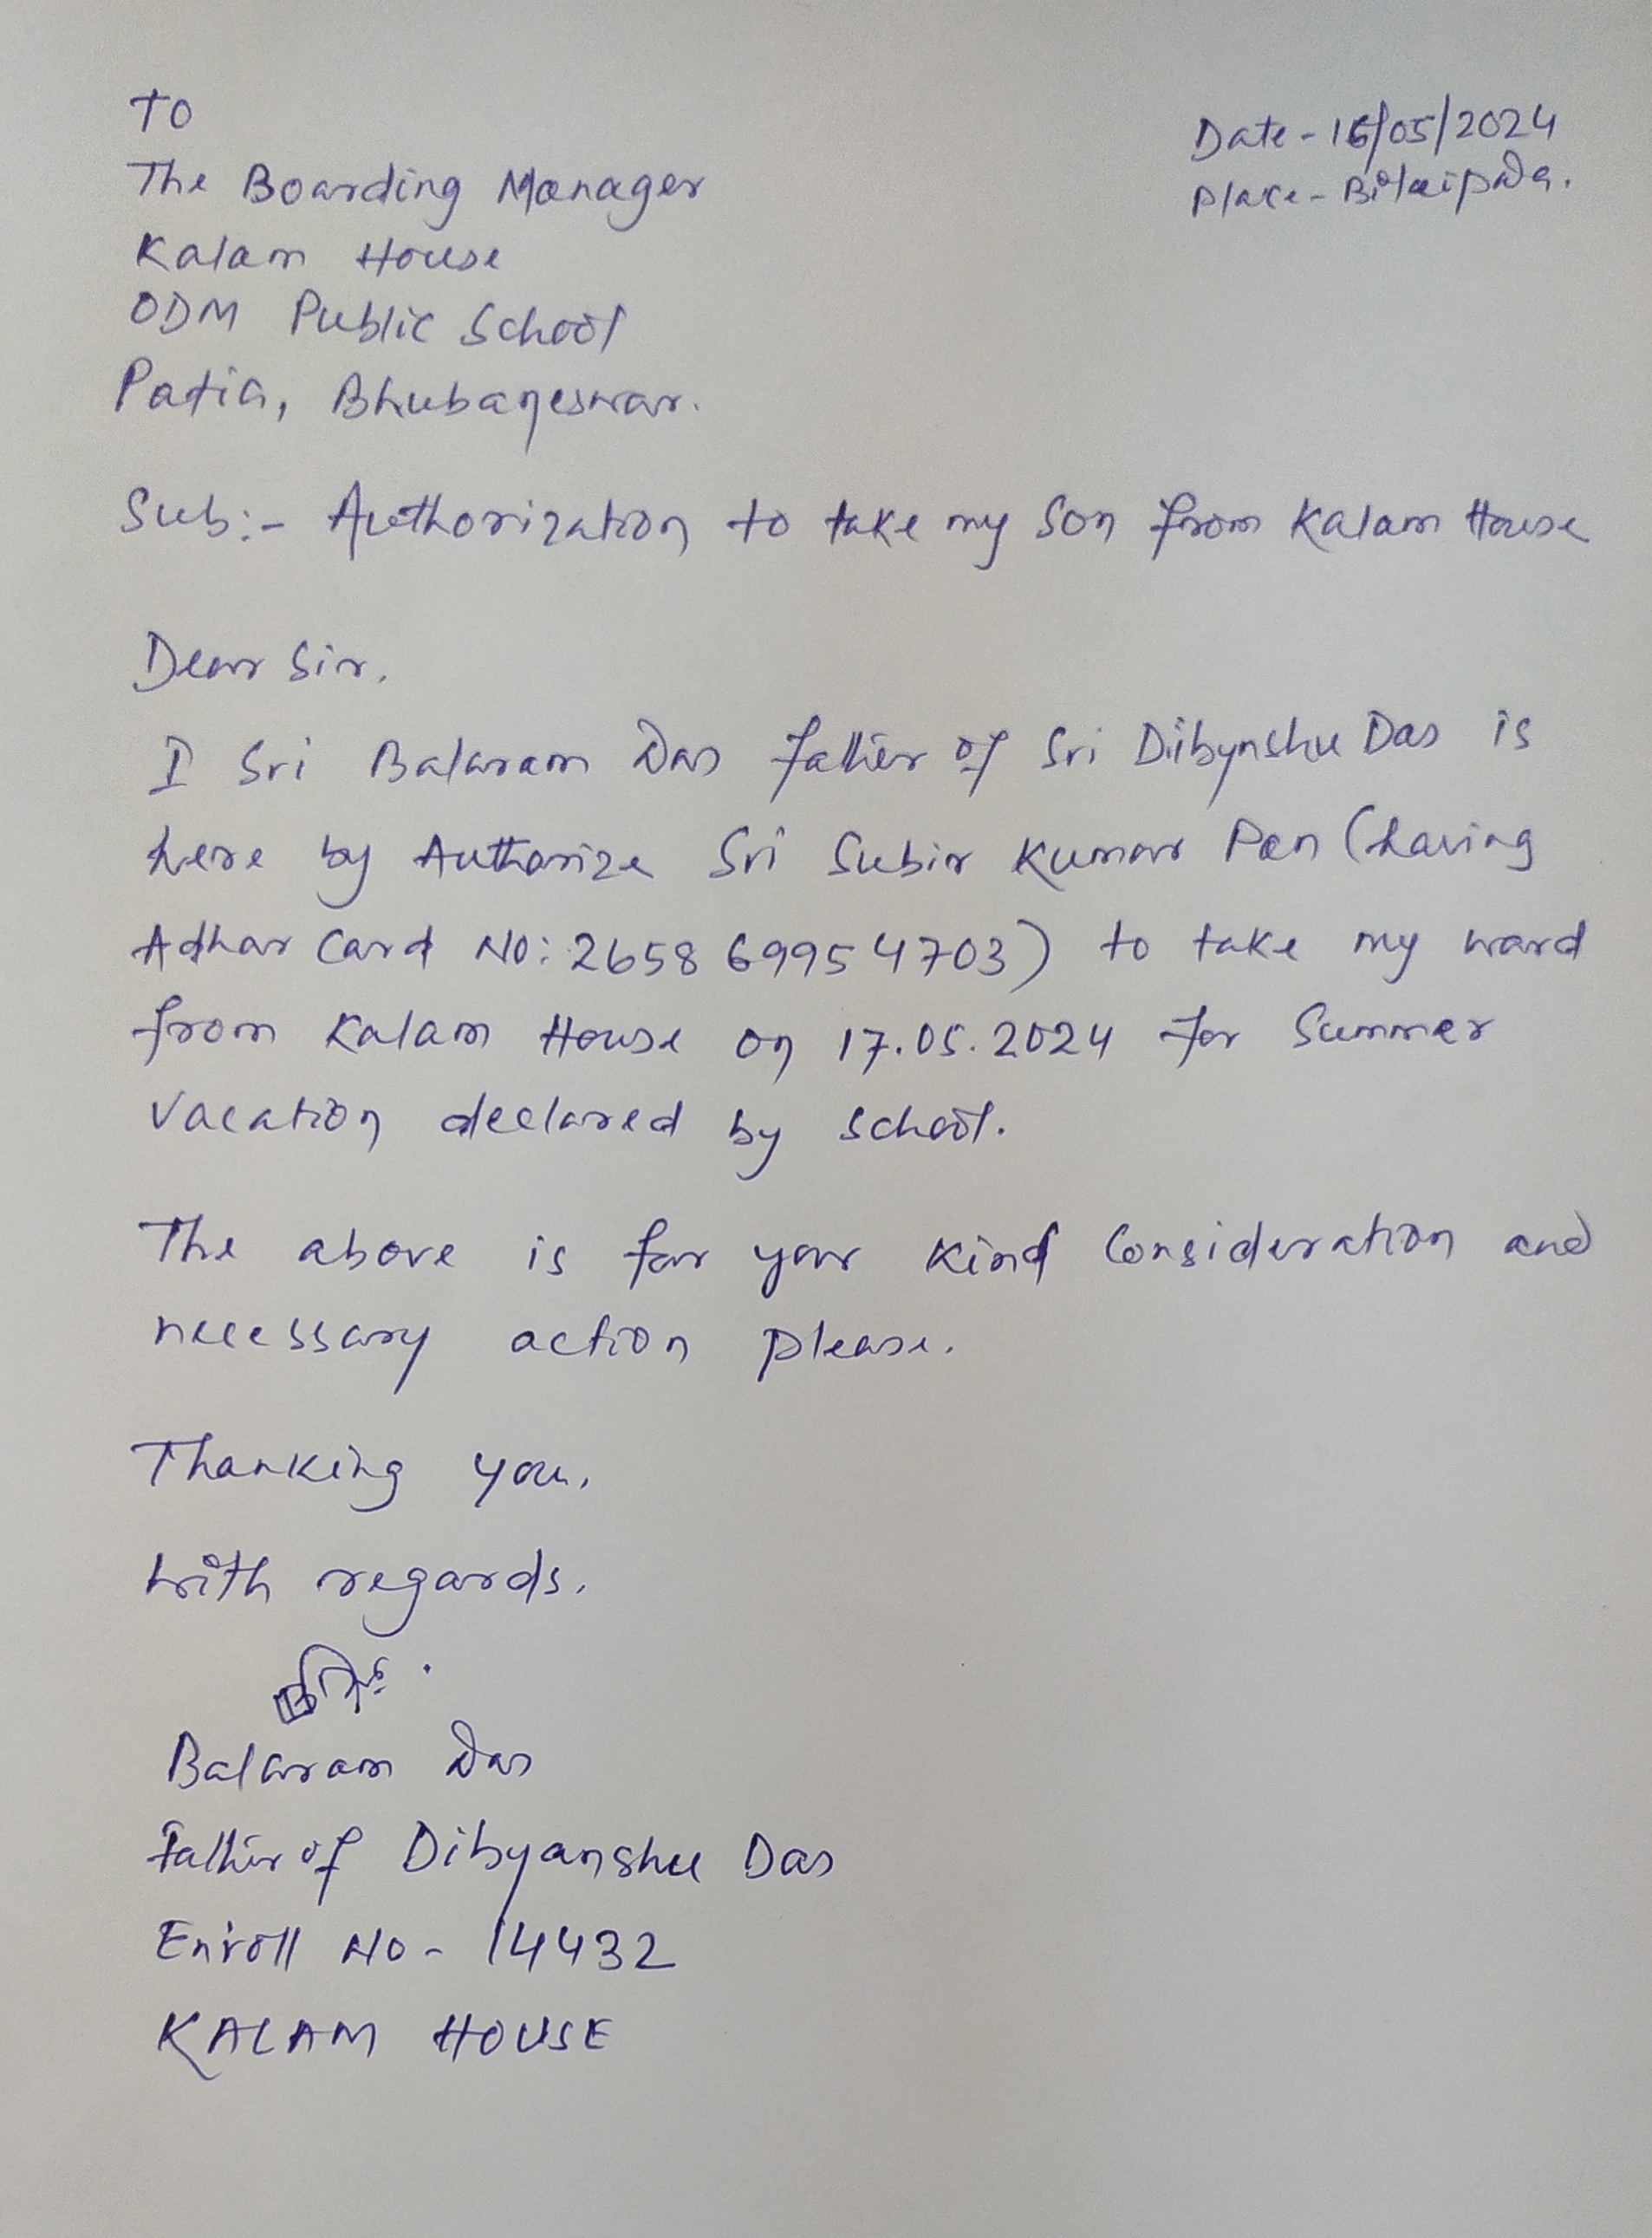 To
Date - 16/05/2024
The Boarding Manager
Place - Bilaipada.
Kalam House
ODM Public School
Patia, Bhubaneswar.
Sub:- Authorization to take my son from Kalam House
Dear Sir,
I Sri Balaram Das father of Sri Dibynshu Das is
here by Authorize Sri Subir Kumar Pan (having
Adhar Card No: 2658 6995 4703) to take my ward
from Kalam House on 17.05.2024 for Summer
Vacation declared by school.
The above is for your kind Consideration and
necessary action please.
Thanking you,
with regards.
Balaram Das
Father of Dibyanshu Das
Enroll No - 14432
KALAM HOUSE